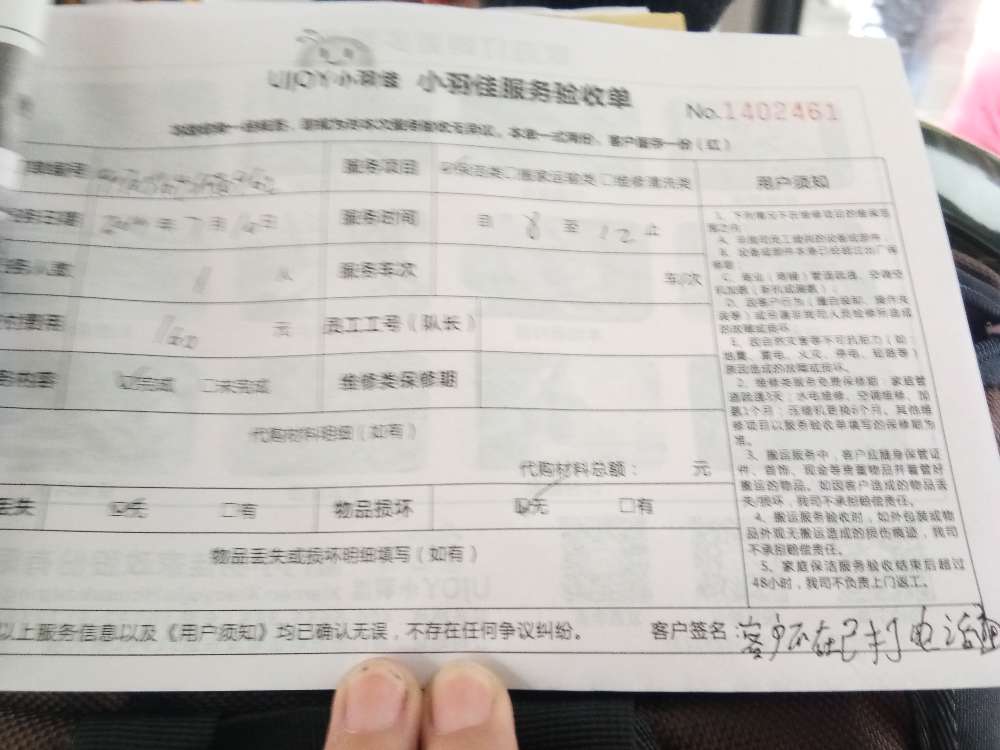 UJOY小羽佳 小羽佳服务验收单
No.1402461
本单一式两份，客户留存一份（红）
服务项目 ☑保洁类□搬家运输类□维修清洗类 用户须知
年7月14日 服务时间 自8至12止
1人 服务车次 车/次
元 员工工号（队长）
☑完成 □未完成 维修类保修期
代购材料明细（如有）
代购材料总额： 元
丢失 ☑无 □有 物品损坏 ☑无 □有
物品丢失或损坏明细填写（如有）
1、下列情况不在维修项目的维保范围之内
A、非我司员工维修的设备或部件；
B、设备或部件本身已经超过出厂保修期
C、商业（商铺）管道疏通、空调空机加氨（新机或漏氨）；
D、因客户行为（擅自装卸、操作失误等）或另请非我司人员检修所造成的故障或损坏
E、因自然灾害等不可抗拒力（如：地震、雷电、火灾、停电、短路等）原因造成的故障或损坏。
2、维修类服务免费保修期：家庭管道疏通3天；水电维修、空调维修、加氨1个月；压缩机更换6个月。其他维修项目以服务验收单填写的保修期为准。
3、搬运服务中，客户应随身保管证件、首饰、现金等贵重物品并看管好搬运的物品。如因客户造成的物品丢失/损坏，我司不承担赔偿责任。
4、搬运服务验收时，如外包装或物品外观无搬运造成的损伤痕迹，我司不承担赔偿责任。
5、家庭保洁服务验收结束后超过48小时，我司不负责上门返工。
以上服务信息以及《用户须知》均已确认无误，不存在任何争议纠纷。 客户签名 客户不在已打电话